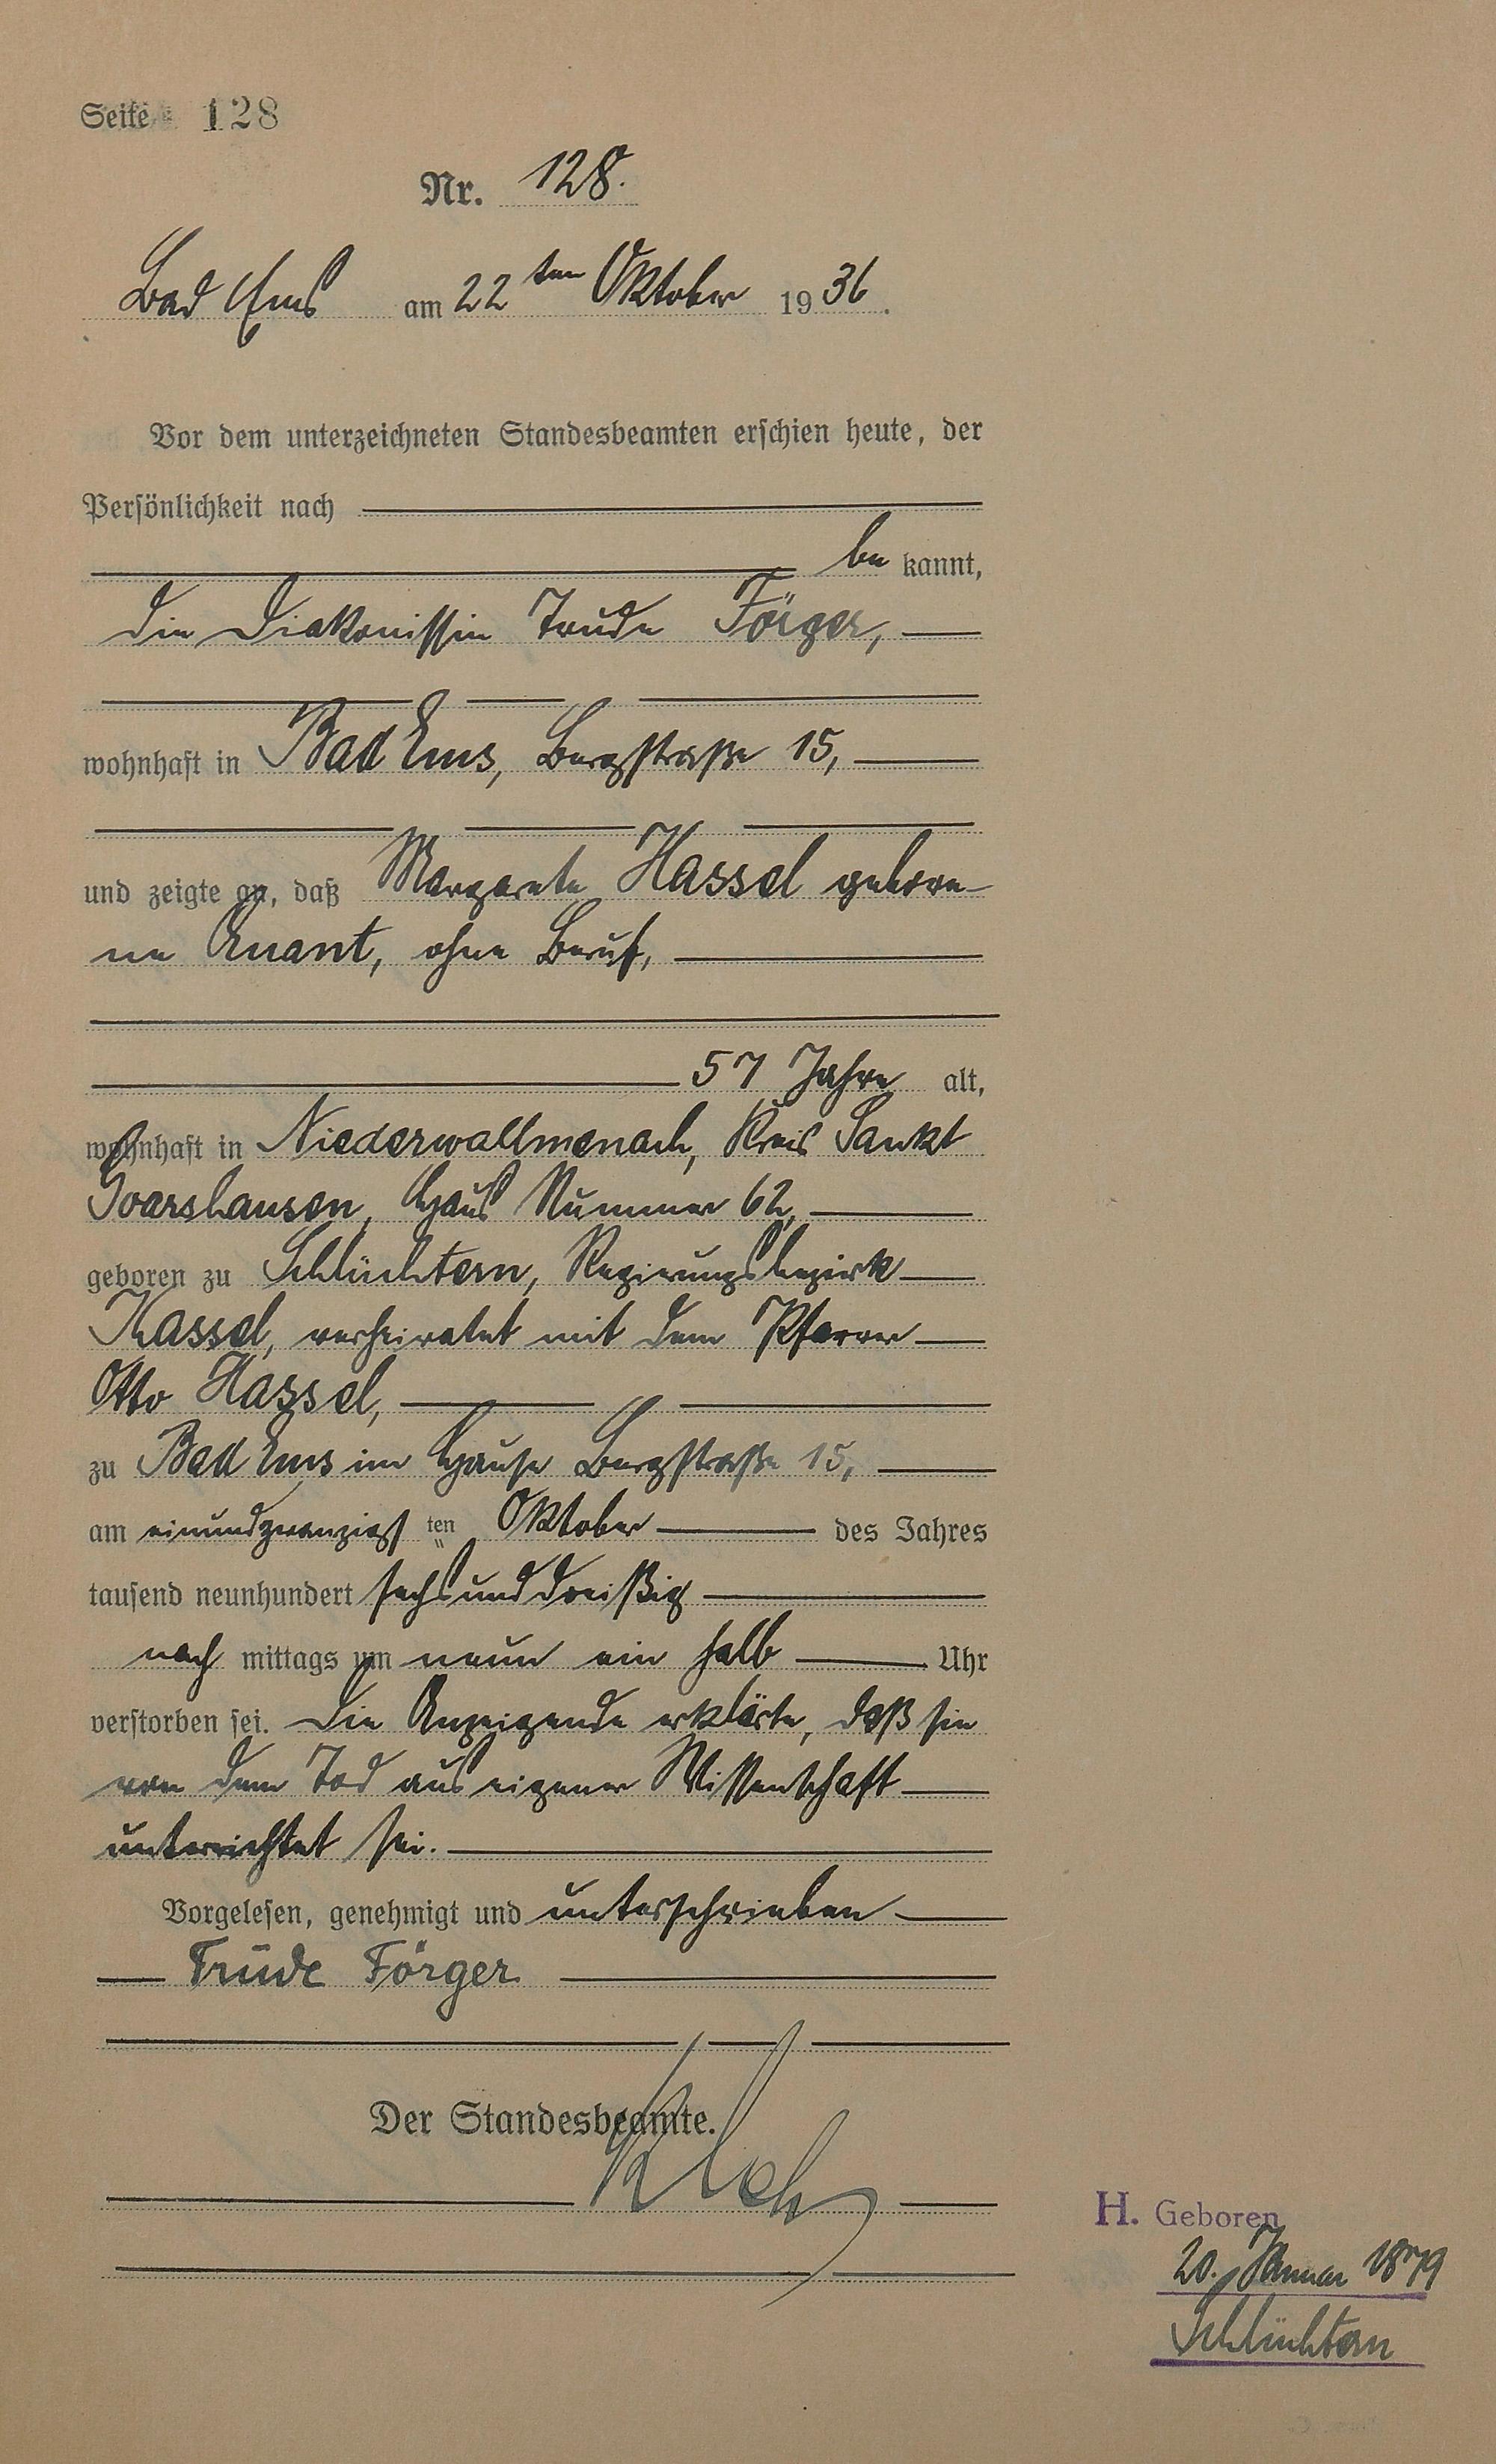 Seite 128
Nr. 128.
Bad Ems am 22ten Oktober 1936.
Vor dem unterzeichneten Standesbeamten erschien heute, der
Persönlichkeit nach
be kannt,
die Diakonissin Trude Förger,
wohnhaft in Bad Ems, Bergstraße 15,
und zeigte an, daß Margarete Hassel gebore-
ne Quant, ohne Beruf,
57 Jahre alt,
wohnhaft in Niederwallmenach, Kreis Sankt
Goarshausen, Haus Nummer 62,
geboren zu Schlüchtern, Regierungsbezirk
Kassel, verheiratet mit dem Pfarrer
Otto Hassel,
zu Bad Ems im Hause Bergstraße 15,
am einundzwanzigsten Oktober des Jahres
tausend neunhundert sechsunddreißig
nach mittags um neun ein halb Uhr
verstorben sei. Die Anzeigende erklärte, daß sie
von dem Tod aus eigener Wissenschaft
unterrichtet sei.
Vorgelesen, genehmigt und unterschrieben
Trude Förger.
Der Standesbeamte.
H. Geboren
20. Januar 1879
Schlüchtern